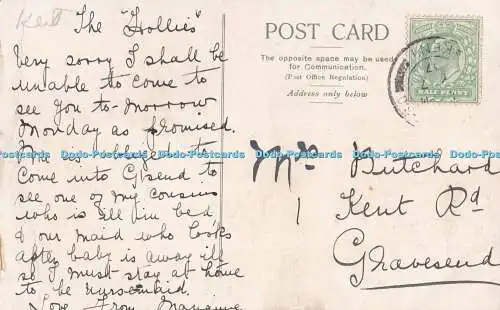 Kent
The "Hollies"
Very sorry I shall be
unable to come to
see you to-morrow
Monday as promised.
obliged to
come into G/send to
see one of my cousins
who is ill in bed
& our maid who looks
after baby is away ill
so I must stay at home
to be nursemaid.
Love from
POST CARD
The opposite space may be used
for Communication.
(Post Office Regulation)
Address only below
HALF PENNY
Mrs Butchard
1 Kent Rd
Gravesend
Dodo-Postcards Dodo-Postcards Dodo-Postcards Dodo-Postcards Dodo-Postcards